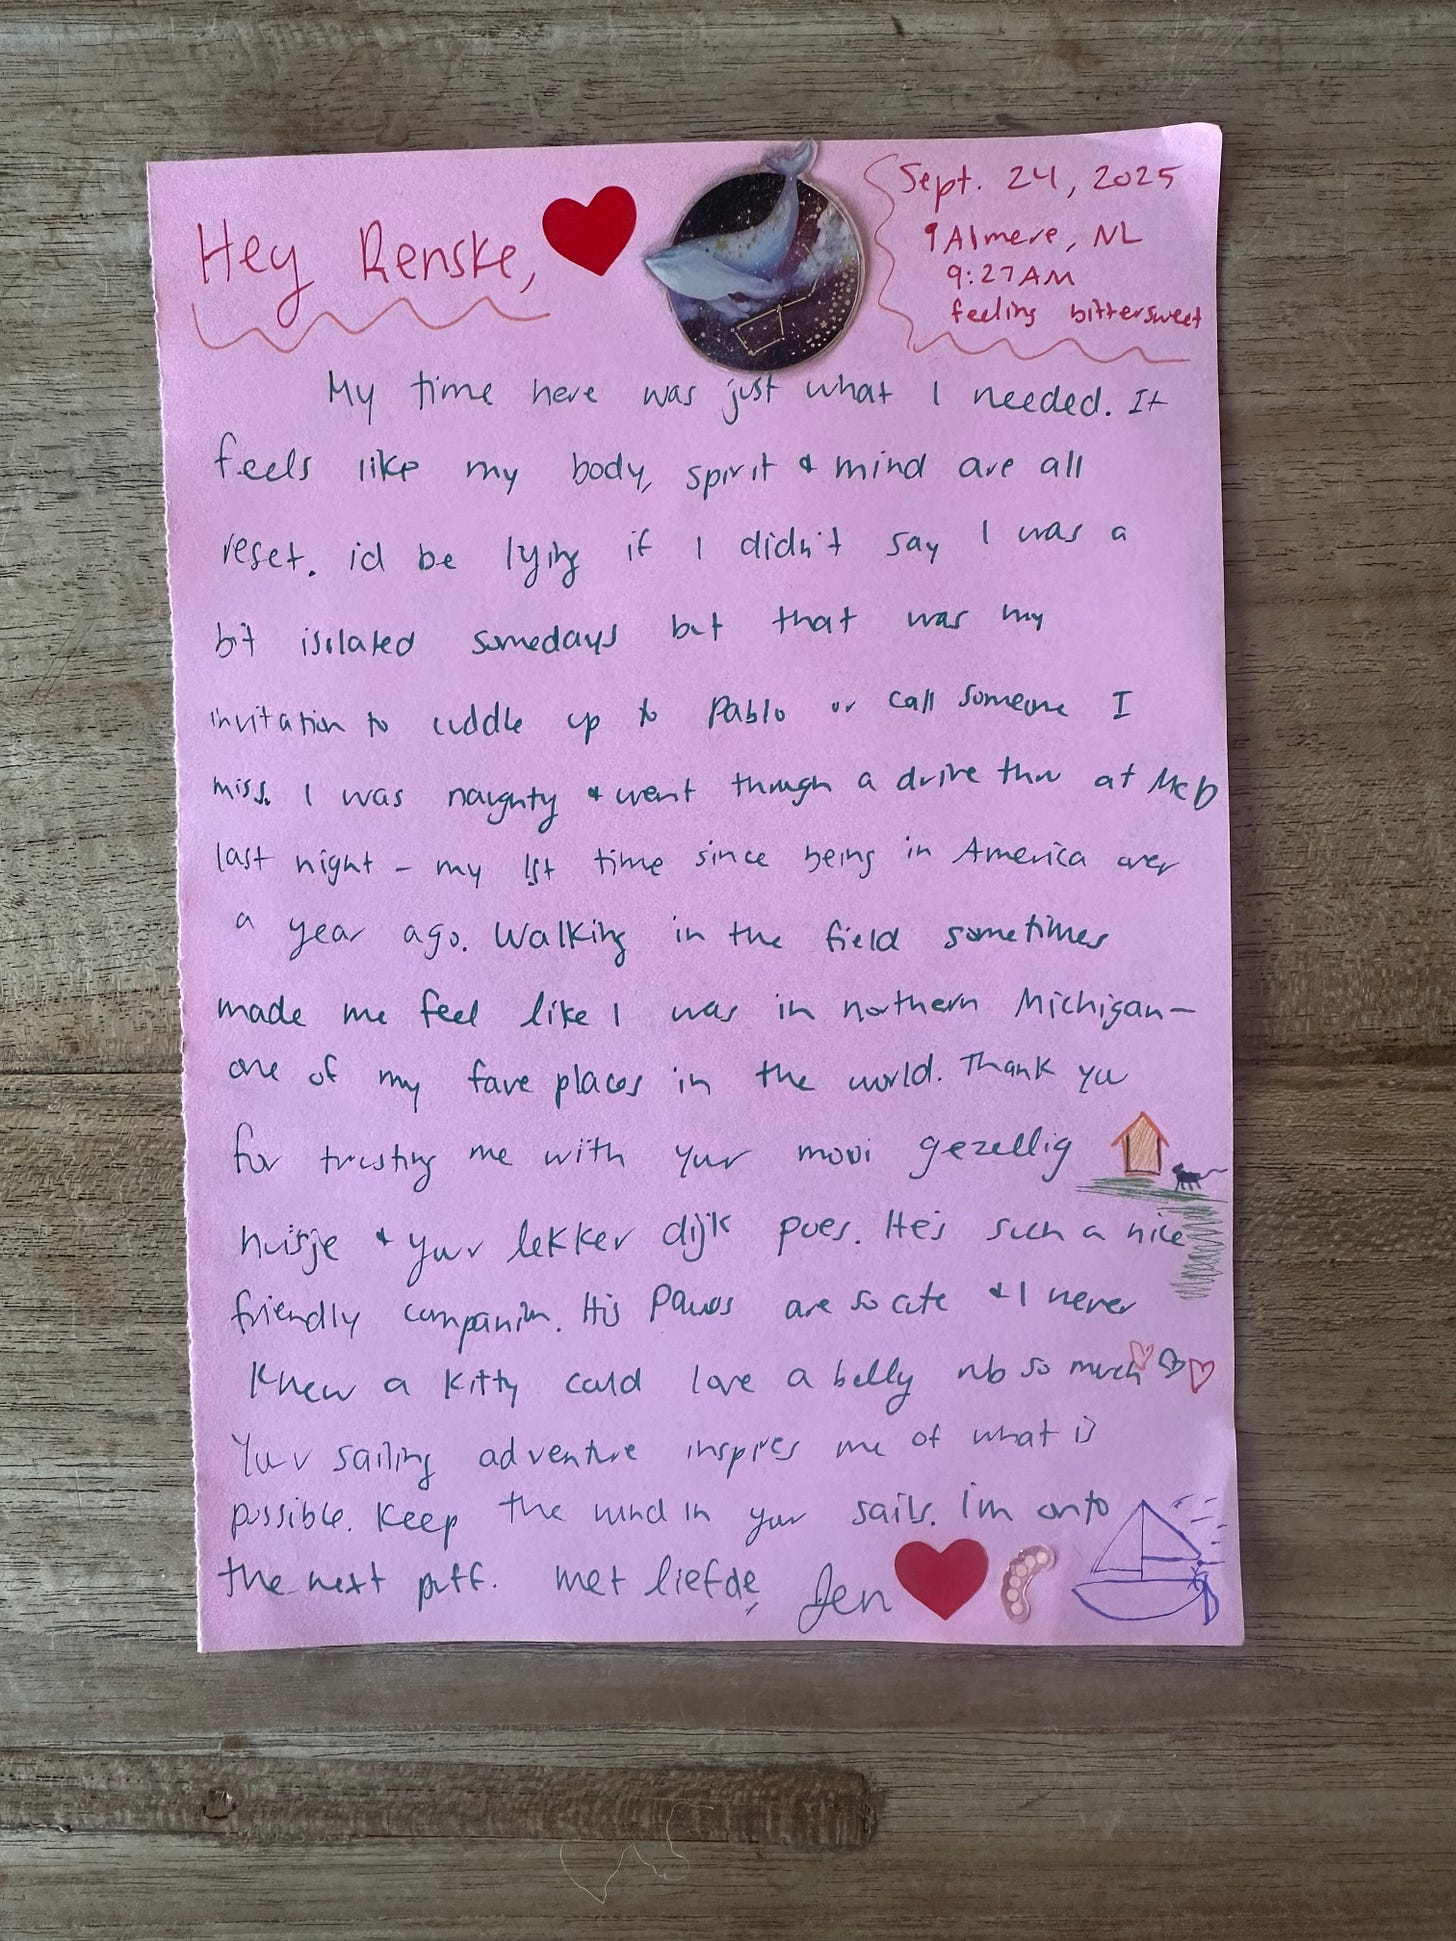 Hey Renske,
Sept. 24, 2025
Almere, NL
9:27AM
feeling bittersweet
My time here was just what I needed. It
feels like my body, spirit & mind are all
reset. i'd be lying if I didn't say I was a
bit isolated somedays but that was my
invitation to cuddle up to Pablo or call someone I
miss. I was naughty & went through a drive thru at McD
last night - my 1st time since being in America over
a year ago. Walking in the field sometimes
made me feel like I was in northern Michigan-
one of my fave places in the world. Thank you
for trusting me with your mooi gezellig
huisje & your lekker dijk poes. He's such a nice
friendly companion. His paws are so cute & I never
knew a kitty could love a belly rub so much
Your sailing adventure inspires me of what is
possible. Keep the wind in your sails. I'm onto
the next
met liefde, Jen